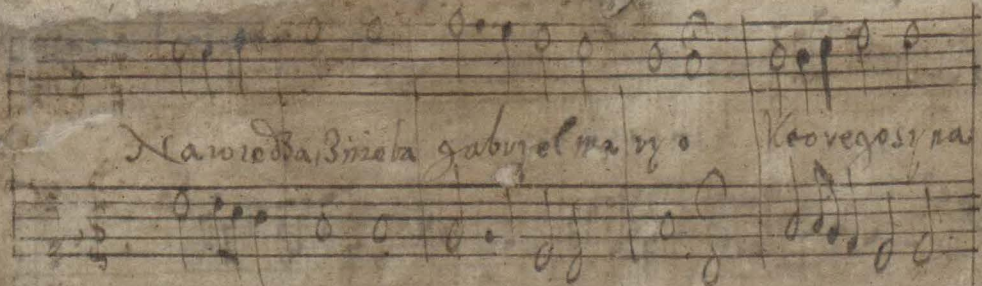 Nawiedza, Znieba gabryel maryo Ktoregosyna